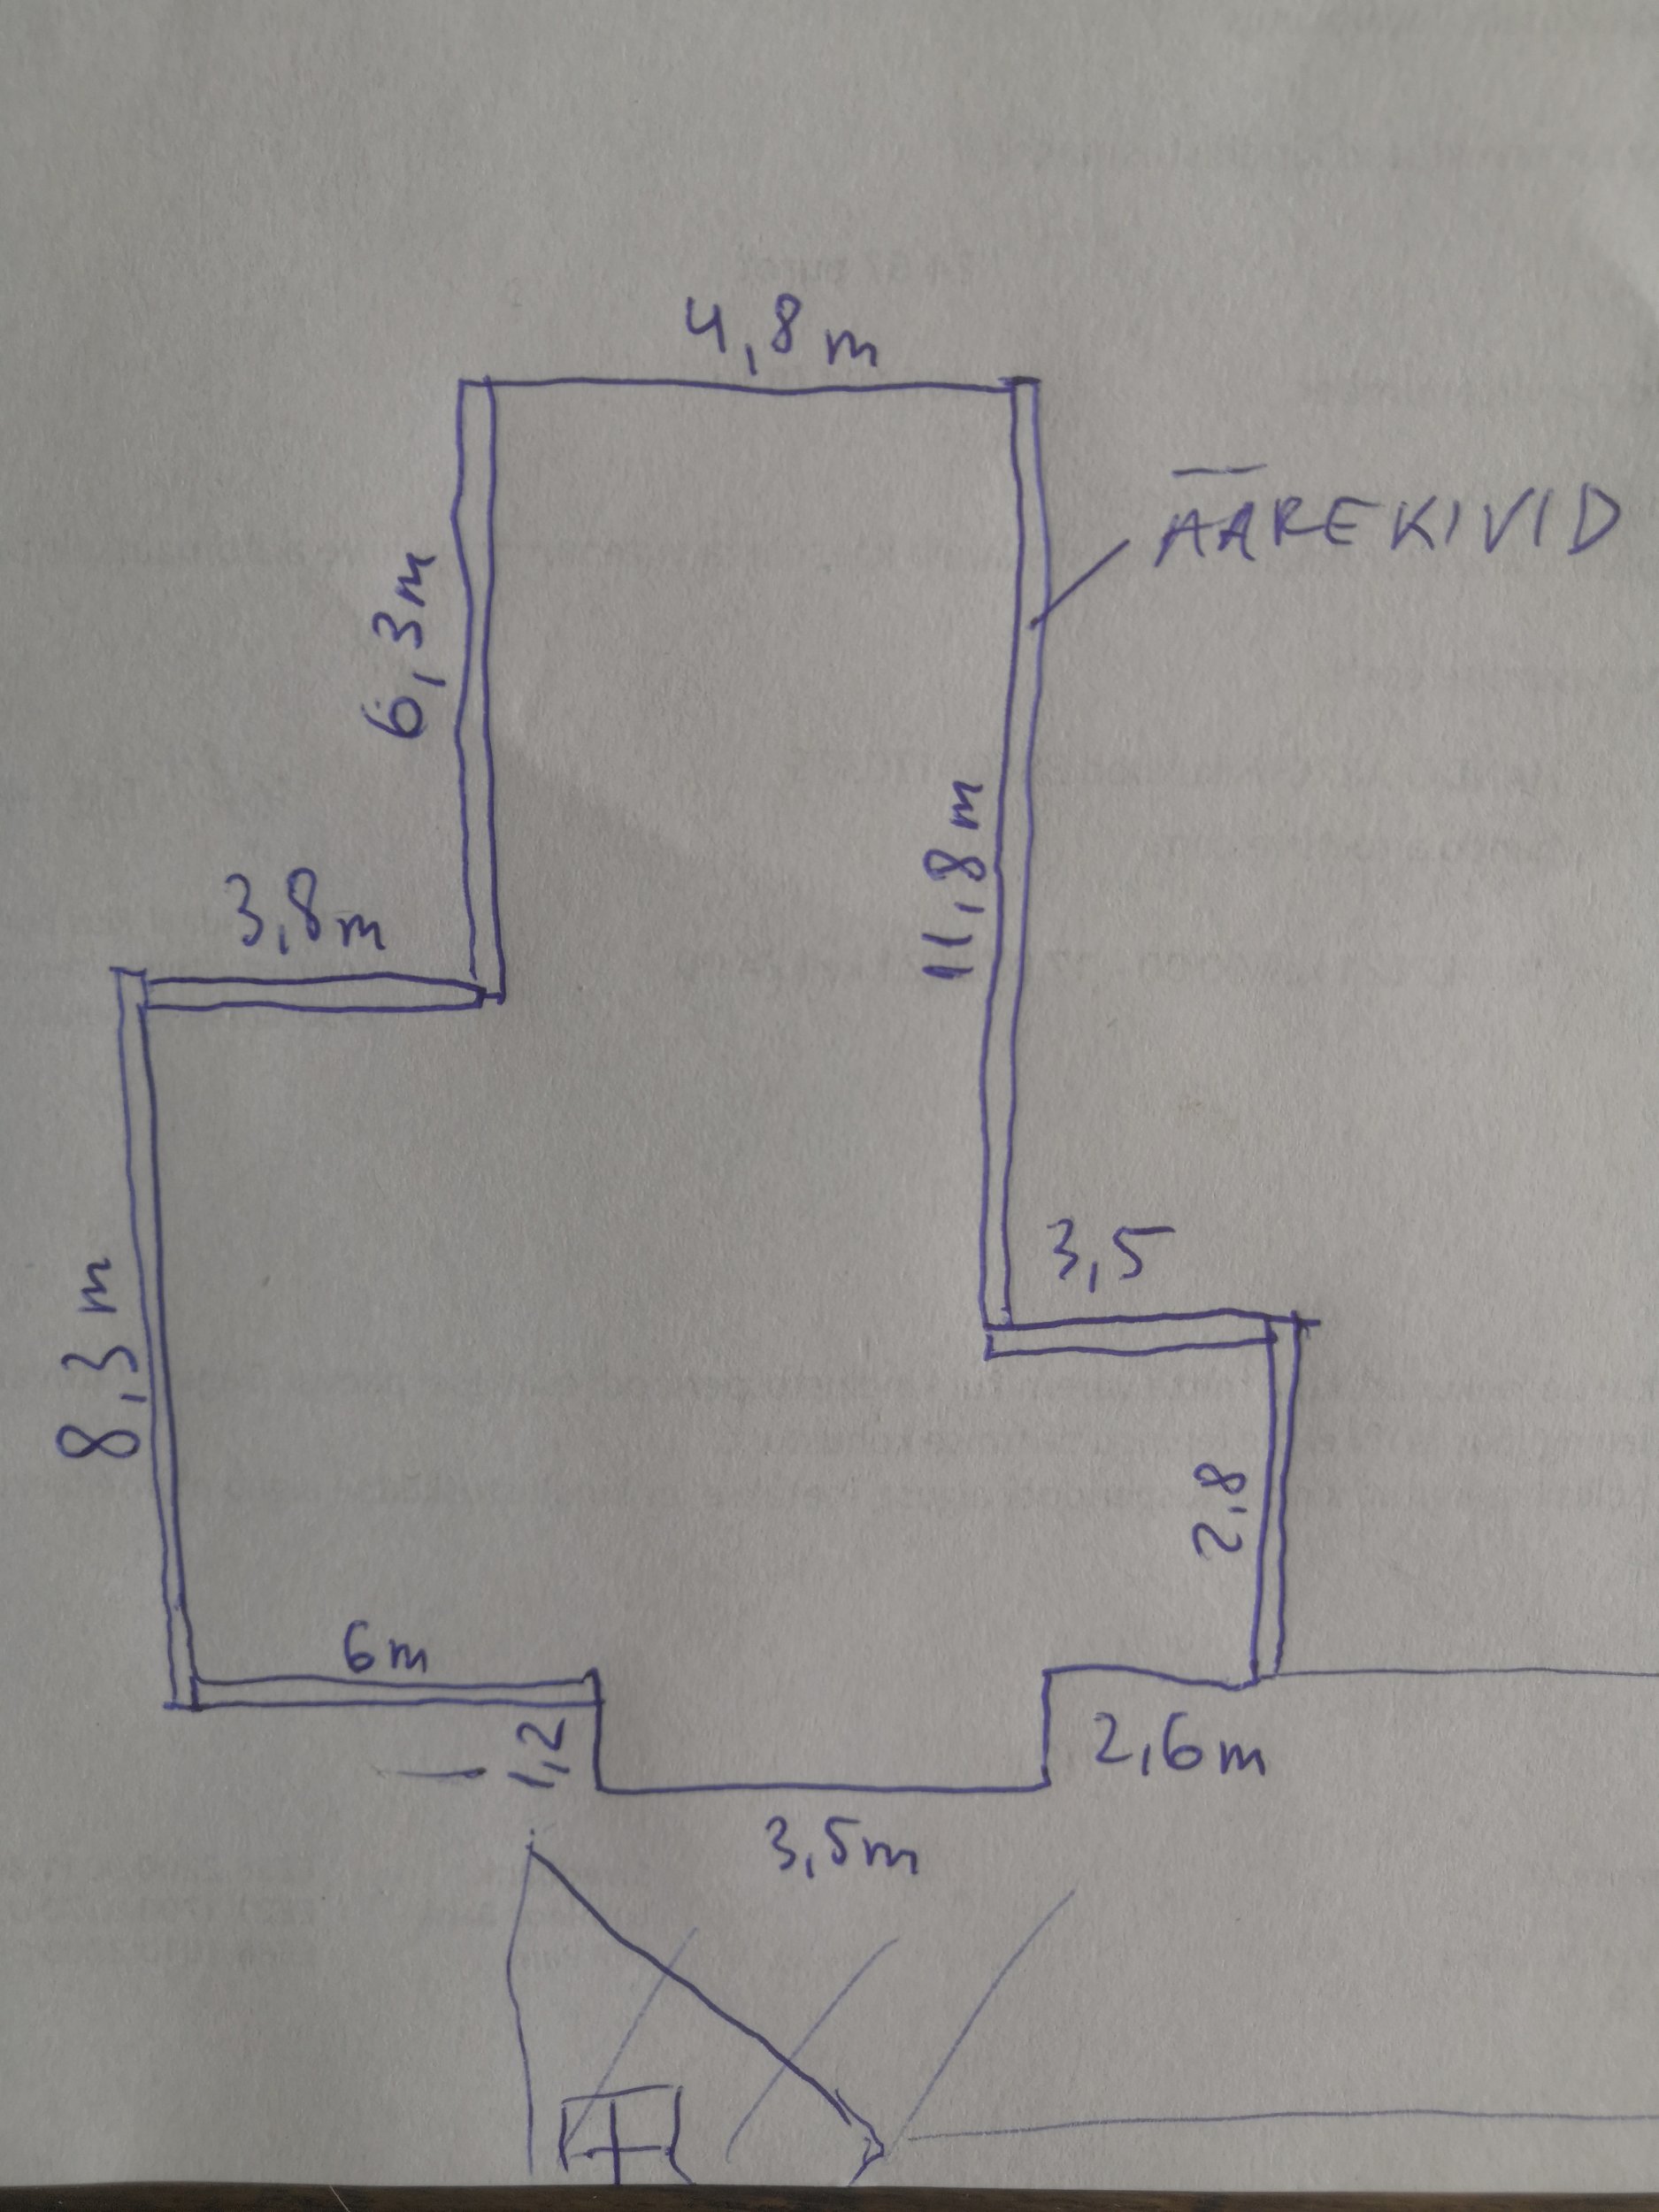 4,8m
ÄÄREKIVID
6,3m
11,8m
3,8m
3,5
8,3m
2,8
6m
1,2
2,6m
3,5m